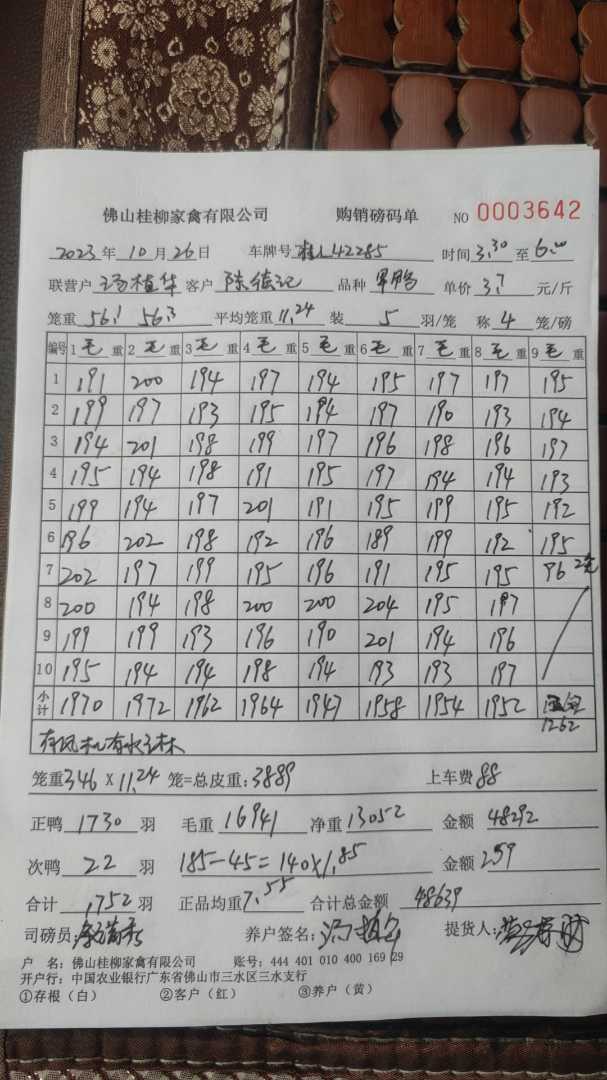 佛山桂柳家禽有限公司 购销磅码单 NO 0003642
2023年10月26日 车牌号桂L42285 时间3.30至6.00
联营户 植华 客户 陈德记 品种 单价3.7元/斤
笼重56.1 56.3 平均笼重11.24 装5羽/笼 称4笼/磅
编号 1毛重 2毛重 3毛重 4毛重 5毛重 6毛重 7毛重 8毛重 9毛重
1 191 200 194 197 194 195 197 197 195
2 199 197 193 195 194 197 190 193 194
3 194 201 198 199 197 196 198 196 197
4 195 194 198 191 195 197 194 194 193
5 199 194 197 201 191 195 199 195 192
6 196 202 198 192 196 189 199 192 195
7 202 197 199 195 196 191 195 195 96 2笼
8 200 194 198 200 200 204 195 197
9 199 199 193 196 190 201 194 196
10 195 194 194 198 194 193 193 197
小计 1970 1972 1962 1964 1947 1958 1954 1952 1262
有风机有水
笼重346×11.24笼=总皮重:3889 上车费88
正鸭1730羽 毛重16941 净重13052 金额48292
次鸭22羽 185-45=140×1.85 金额259
合计1752羽 正品均重7.55 合计总金额48639
司磅员: 养户签名: 提货人:
户 名:佛山桂柳家禽有限公司 账号:444 401 010 400 169 29
开户行:中国农业银行广东省佛山市三水区三水支行
①存根(白) ②客户(红) ③养户(黄)